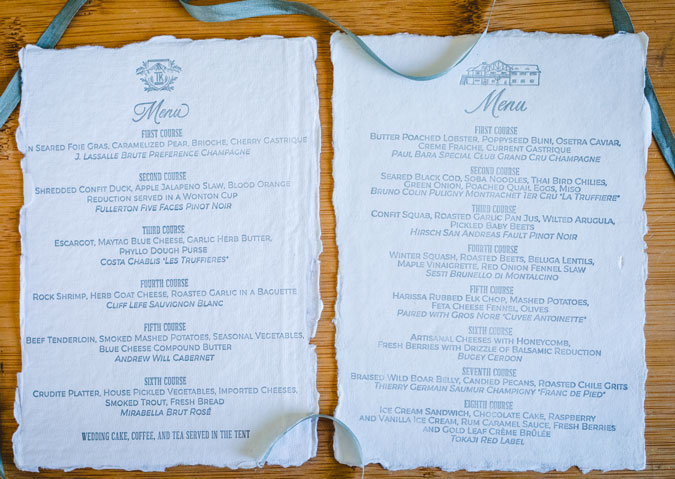 TR
Menu
FIRST COURSE
N SEARED FOIE GRAS, CARAMELIZED PEAR, BRIOCHE, CHERRY GASTRIQUE
J. LASSALLE BRUTE PREFERENCE CHAMPAGNE
SECOND COURSE
SHREDDED CONFIT DUCK, APPLE JALAPENO SLAW, BLOOD ORANGE
REDUCTION SERVED IN A WONTON CUP
FULLERTON FIVE FACES PINOT NOIR
THIRD COURSE
ESCARGOT, MAYTAG BLUE CHEESE, GARLIC HERB BUTTER,
PHYLLO DOUGH PURSE
COSTA CHABLIS "LES TRUFFIERES"
FOURTH COURSE
ROCK SHRIMP, HERB GOAT CHEESE, ROASTED GARLIC IN A BAGUETTE
CLIFF LEFE SAUVIGNON BLANC
FIFTH COURSE
BEEF TENDERLOIN, SMOKED MASHED POTATOES, SEASONAL VEGETABLES,
BLUE CHEESE COMPOUND BUTTER
ANDREW WILL CABERNET
SIXTH COURSE
CRUDITE PLATTER, HOUSE PICKLED VEGETABLES, IMPORTED CHEESES,
SMOKED TROUT, FRESH BREAD
MIRABELLA BRUT ROSÉ
WEDDING CAKE, COFFEE, AND TEA SERVED IN THE TENT
Menu
FIRST COURSE
BUTTER POACHED LOBSTER, POPPYSEED BLINI, OSETRA CAVIAR,
CREME FRAICHE, CURRENT GASTRIQUE
PAUL BARA SPECIAL CLUB GRAND CRU CHAMPAGNE
SECOND COURSE
SEARED BLACK COD, SOBA NOODLES, THAI BIRD CHILIES,
GREEN ONION, POACHED QUAIL EGGS, MISO
BRUNO COLIN PULIGNY MONTRACHET 1ER CRU "LA TRUFFIERE"
THIRD COURSE
CONFIT SQUAB, ROASTED GARLIC PAN JUS, WILTED ARUGULA,
PICKLED BABY BEETS
HIRSCH SAN ANDREAS FAULT PINOT NOIR
FOURTH COURSE
WINTER SQUASH, ROASTED BEETS, BELUGA LENTILS,
MAPLE VINAIGRETTE, RED ONION FENNEL SLAW
SESTI BRUNELLO DI MONTALCINO
FIFTH COURSE
HARISSA RUBBED ELK CHOP, MASHED POTATOES,
FETA CHEESE FENNEL, OLIVES
PAIRED WITH GROS NORE "CUVEE ANTOINETTE"
SIXTH COURSE
ARTISANAL CHEESES WITH HONEYCOMB,
FRESH BERRIES WITH DRIZZLE OF BALSAMIC REDUCTION
BUGEY CERDON
SEVENTH COURSE
BRAISED WILD BOAR BELLY, CANDIED PECANS, ROASTED CHILE GRITS
THIERRY GERMAIN SAUMUR CHAMPIGNY "FRANC DE PIED"
EIGHTH COURSE
ICE CREAM SANDWICH, CHOCOLATE CAKE, RASPBERRY
AND VANILLA ICE CREAM, RUM CARAMEL SAUCE, FRESH BERRIES
AND GOLD LEAF CRÈME BRÛLÉE
TOKAJI RED LABEL